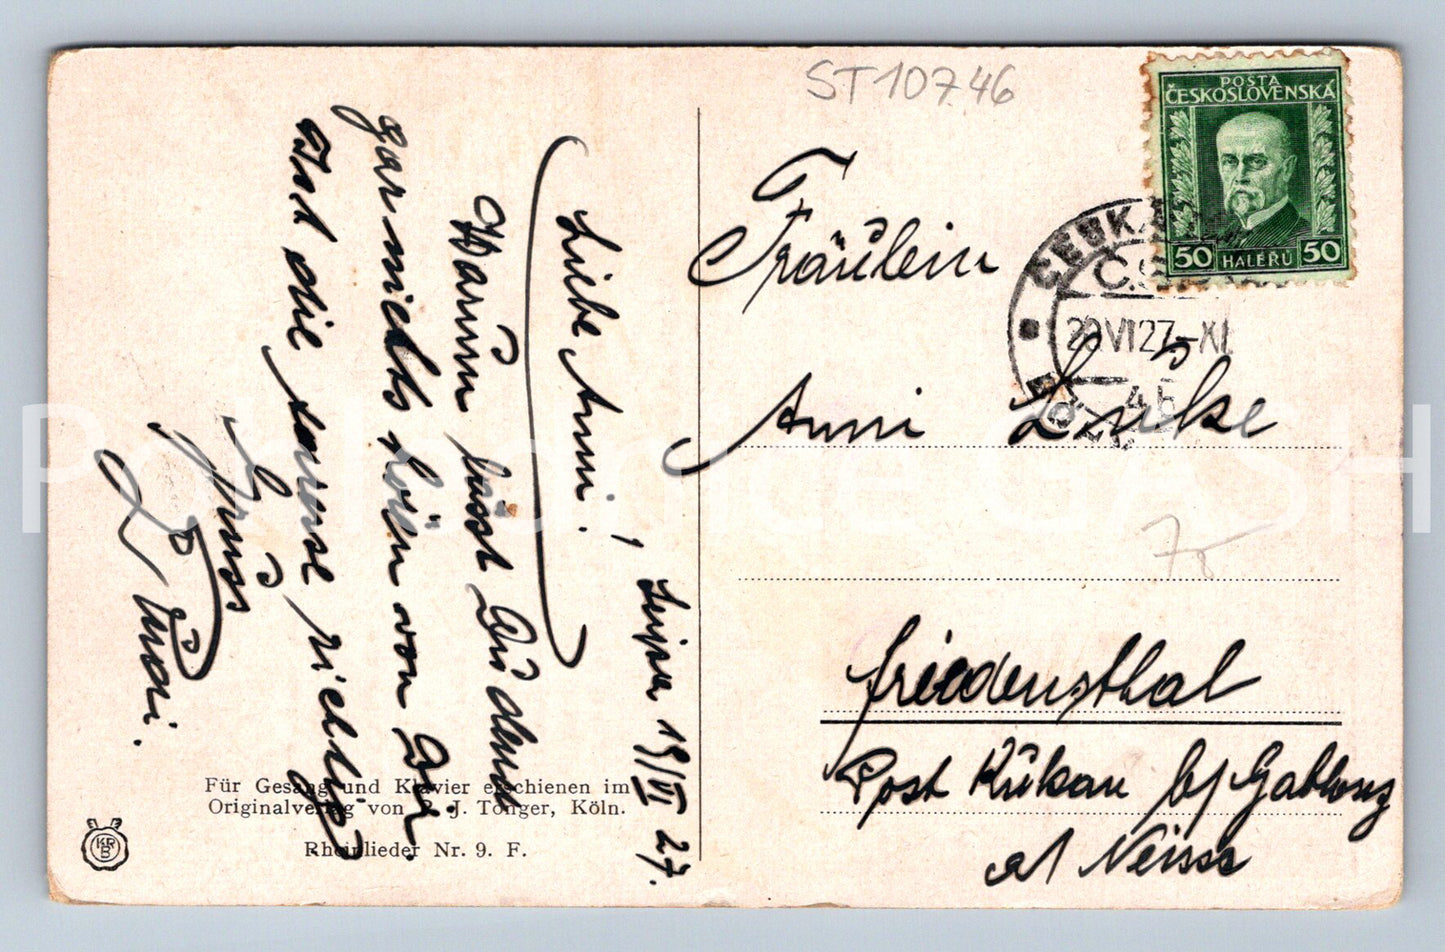 ST10746
POSTA
ČESKOSLOVENSKÁ
50 HALÉŘŮ 50
Č.S.
20 VI 27-XI
Liebe Anni!
Warum lässt Du denn
gar nichts hören von Dir.
Ist die
Gruss
Leipa 19/VI 27.
Fräulein
Anni Lüke
75
Friedensthal
Post Kukan b/ Gablonz
a/ Neisse
Für Gesang und Klavier erschienen im
Originalverlag von P. J. Tonger, Köln.
Rheinlieder Nr. 9. F.
KRB
Pohlednice CSH